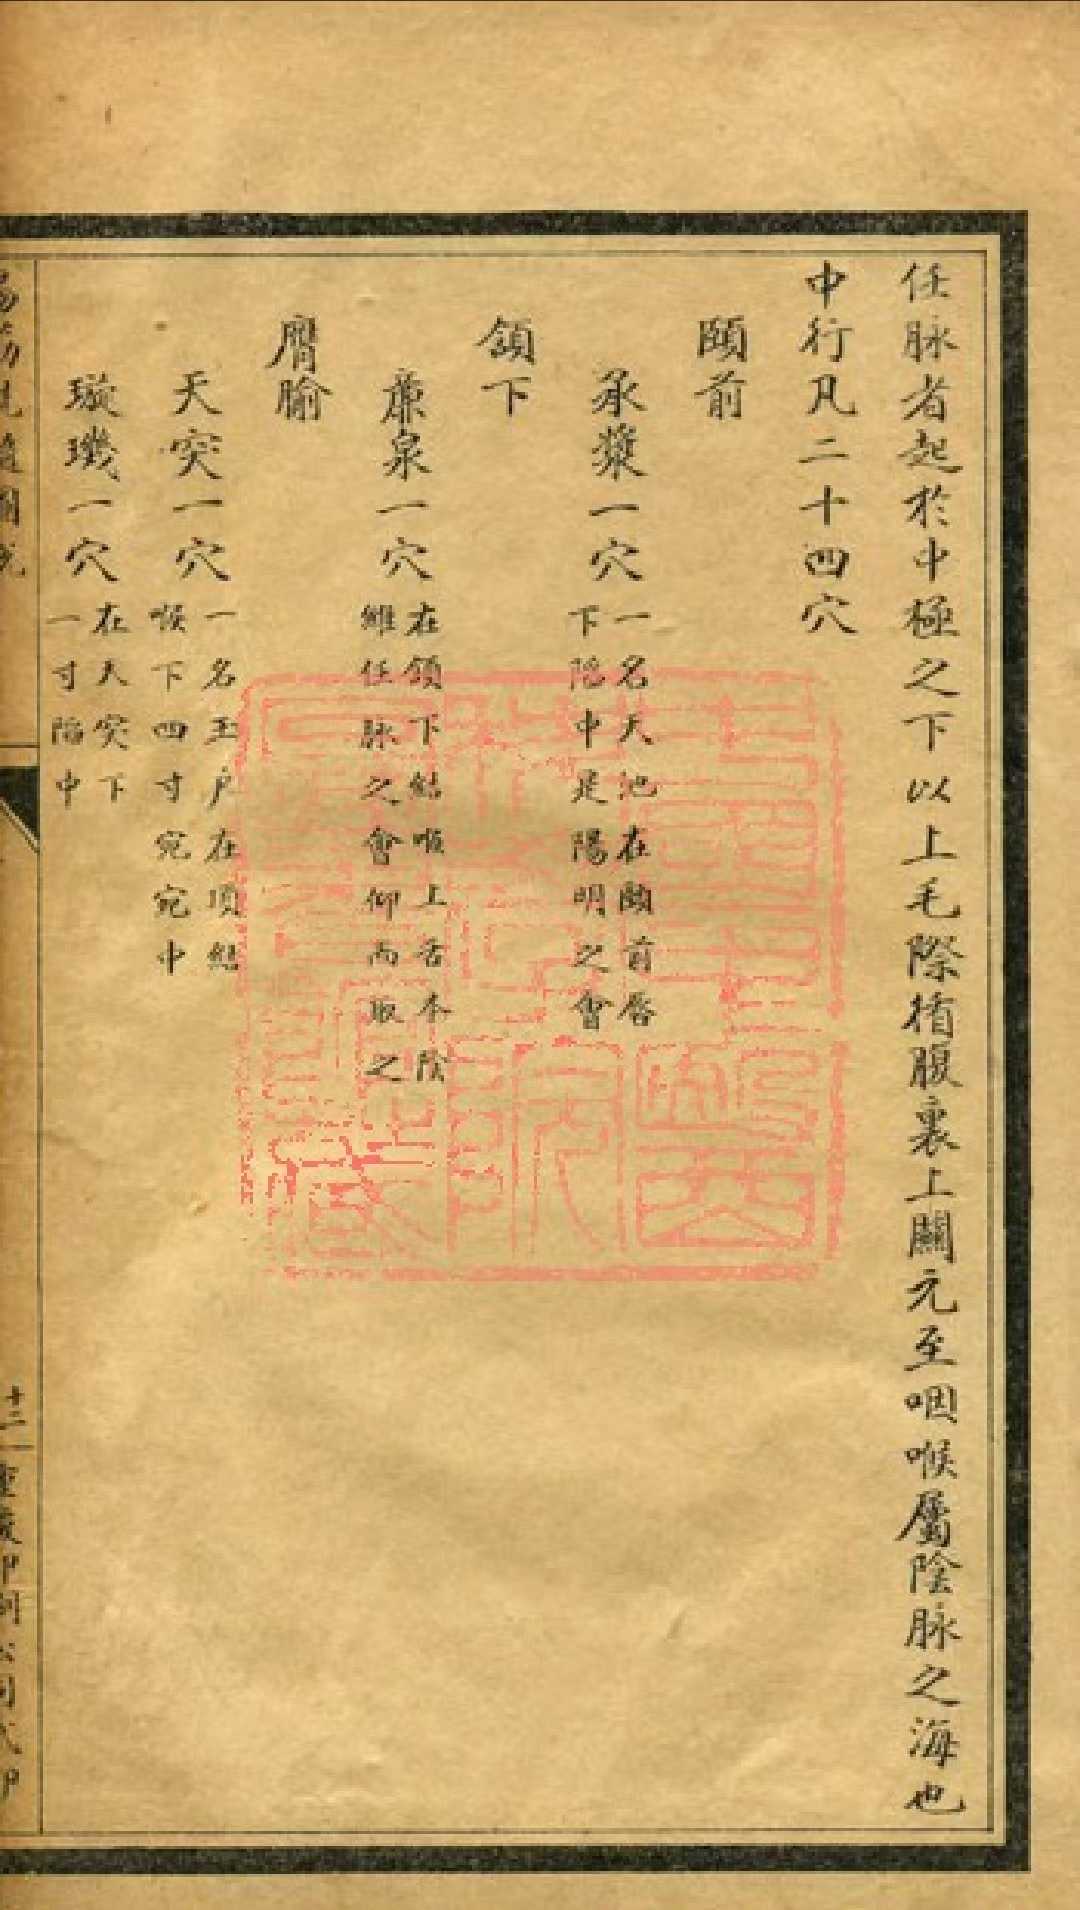 任脉者起於中極之下以上毛際循腹裏上關元至咽喉屬陰脉之海也
中行凡二十四穴
頤前
承漿一穴
一名天池在頤前唇
下陷中是陽明之會
頷下
廉泉一穴
在頷下結喉上舌本陰
維任脉之會仰而取之
膺腧
天突一穴
一名玉户在項結
喉下四寸宛宛中
璇璣一穴
在天突下
一寸陷中
十三